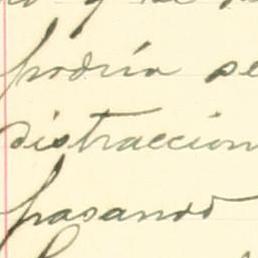 podría se
distraccion
pasando